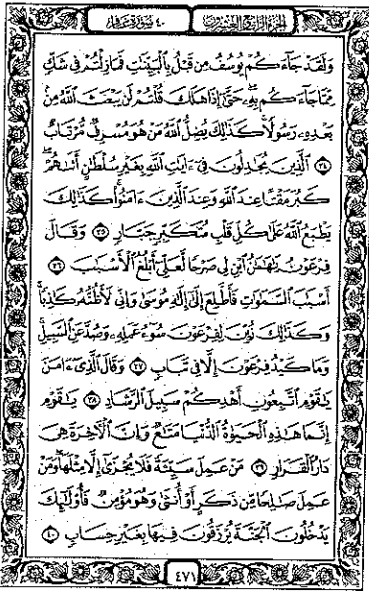 الجزء الرابع والعشرون
٤٠ سورة غافر
وَلَقَدْ جَآءَكُمْ يُوسُفُ مِن قَبْلُ بِٱلْبَيِّنَـٰتِ فَمَا زِلْتُمْ فِى شَكٍّ
مِّمَّا جَآءَكُم بِهِۦ ۖ حَتَّىٰٓ إِذَا هَلَكَ قُلْتُمْ لَن يَبْعَثَ ٱللَّهُ مِنۢ
بَعْدِهِۦ رَسُولًا ۚ كَذَٰلِكَ يُضِلُّ ٱللَّهُ مَنْ هُوَ مُسْرِفٌ مُّرْتَابٌ
٣٤ ٱلَّذِينَ يُجَـٰدِلُونَ فِىٓ ءَايَـٰتِ ٱللَّهِ بِغَيْرِ سُلْطَـٰنٍ أَتَىٰهُمْ ۖ
كَبُرَ مَقْتًا عِندَ ٱللَّهِ وَعِندَ ٱلَّذِينَ ءَامَنُوا۟ ۚ كَذَٰلِكَ
يَطْبَعُ ٱللَّهُ عَلَىٰ كُلِّ قَلْبِ مُتَكَبِّرٍ جَبَّارٍ ٣٥ وَقَالَ
فِرْعَوْنُ يَـٰهَـٰمَـٰنُ ٱبْنِ لِى صَرْحًا لَّعَلِّىٓ أَبْلُغُ ٱلْأَسْبَـٰبَ ٣٦
أَسْبَـٰبَ ٱلسَّمَـٰوَٰتِ فَأَطَّلِعَ إِلَىٰٓ إِلَـٰهِ مُوسَىٰ وَإِنِّى لَأَظُنُّهُۥ كَـٰذِبًا ۚ
وَكَذَٰلِكَ زُيِّنَ لِفِرْعَوْنَ سُوٓءُ عَمَلِهِۦ وَصُدَّ عَنِ ٱلسَّبِيلِ ۚ
وَمَا كَيْدُ فِرْعَوْنَ إِلَّا فِى تَبَابٍ ٣٧ وَقَالَ ٱلَّذِىٓ ءَامَنَ
يَـٰقَوْمِ ٱتَّبِعُونِ أَهْدِكُمْ سَبِيلَ ٱلرَّشَادِ ٣٨ يَـٰقَوْمِ
إِنَّمَا هَـٰذِهِ ٱلْحَيَوٰةُ ٱلدُّنْيَا مَتَـٰعٌ وَإِنَّ ٱلْـَٔاخِرَةَ هِىَ
دَارُ ٱلْقَرَارِ ٣٩ مَنْ عَمِلَ سَيِّئَةً فَلَا يُجْزَىٰٓ إِلَّا مِثْلَهَا ۖ وَمَنْ
عَمِلَ صَـٰلِحًا مِّن ذَكَرٍ أَوْ أُنثَىٰ وَهُوَ مُؤْمِنٌ فَأُو۟لَـٰٓئِكَ
يَدْخُلُونَ ٱلْجَنَّةَ يُرْزَقُونَ فِيهَا بِغَيْرِ حِسَابٍ ٤٠
٤٧١